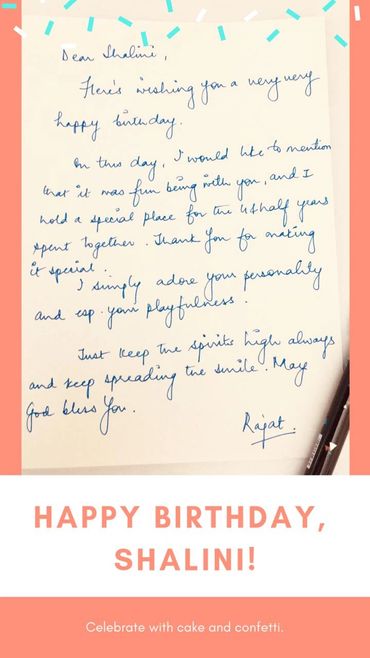 Dear Shalini,
Here's wishing you a very very
happy birthday.
On this day, I would like to mention
that it was fun being with you, and I
hold a special place for the 4½half years
spent together. Thank You for making
it special.
I simply adore your personality
and esp. your playfulness.
Just keep the spirits high always
and keep spreading the smile. May
God bless You.
Rajat.
HAPPY BIRTHDAY,
SHALINI!
Celebrate with cake and confetti.